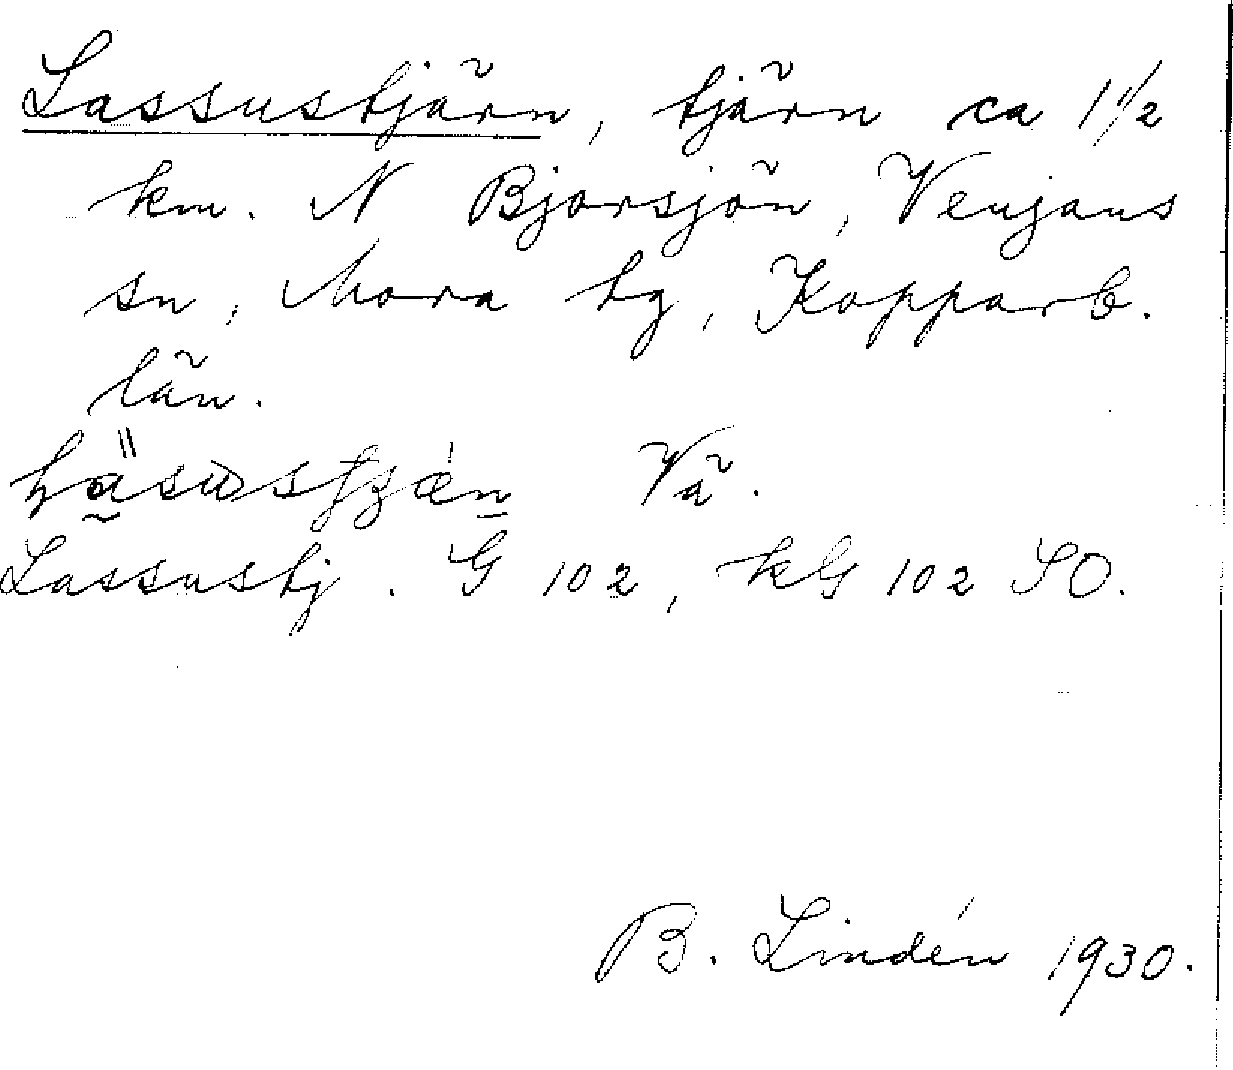 Lassustjärn, tjärn ca 1 1/2
km. N Bjorsjön, Venjans
sn, Mora tg, Kopparb.
län.
Vä.
Lassustj. G 102, kG 102 SO.
B. Lindén 1930.